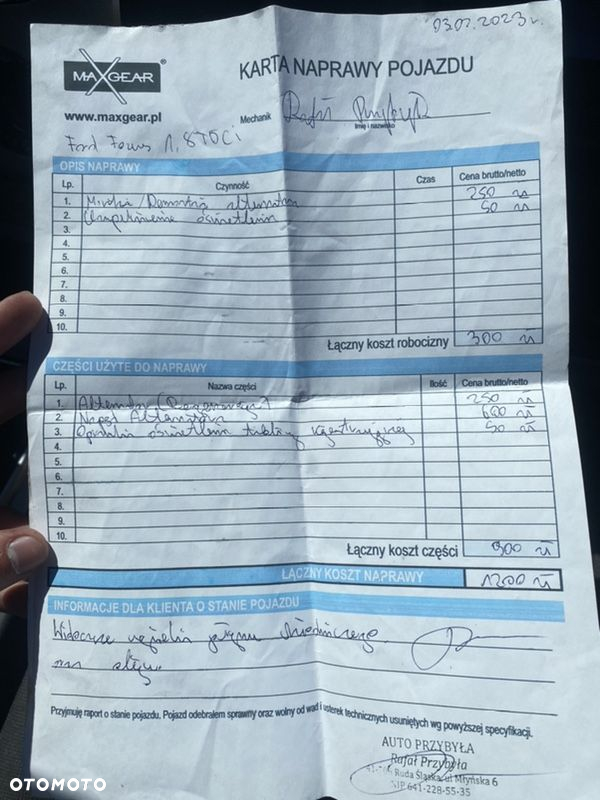 03.07.2023 r.
MAXGEAR®
www.maxgear.pl
KARTA NAPRAWY POJAZDU
Mechanik Rafał Przybyła
Imię i nazwisko
Ford Focus 1,8 TDCi
OPIS NAPRAWY
Lp. Czynność Czas Cena brutto/netto
1. /Demontaż alternatora 250 zł
2. Uzupełnienie oświetlenia 50 zł
3.
4.
5.
6.
7.
8.
9.
10.
Łączny koszt robocizny 300 zł
CZĘŚCI UŻYTE DO NAPRAWY
Lp. Nazwa części Ilość Cena brutto/netto
1. Alternator (Regeneracja) 250 zł
2. Alternatora 600 zł
3. oświetlenia tablicy rejestracyjnej 50 zł
4.
5.
6.
7.
8.
9.
10.
Łączny koszt części 900 zł
ŁĄCZNY KOSZT NAPRAWY 1200 zł
INFORMACJE DLA KLIENTA O STANIE POJAZDU
Widoczne
na
Przyjmuję raport o stanie pojazdu. Pojazd odebrałem sprawny oraz wolny od wad i usterek technicznych usuniętych wg powyższej specyfikacji.
AUTO PRZYBYŁA
Rafał Przybyła
Ruda Śląska, ul Młyńska 6
NIP 641-228-55-35
OTOMOTO